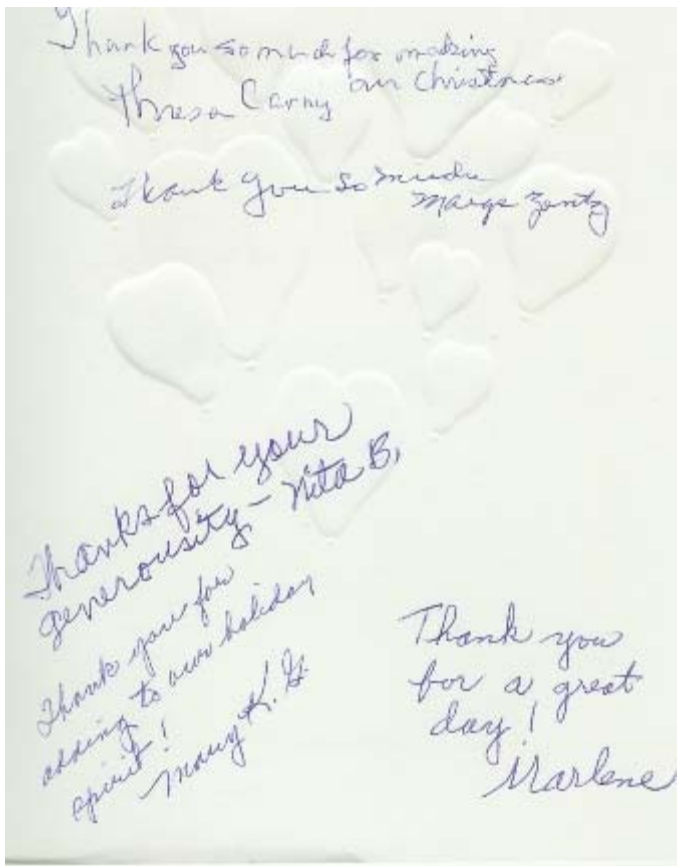 Thank you so much for making
our Christmas
Thresa Carny
Thank you so much
Marge Zentz
Thanks for your
generousity - Nita B.
Thank you for
adding to our holiday
spirit!
Mary K. G.
Thank you
for a great
day!
Marlene